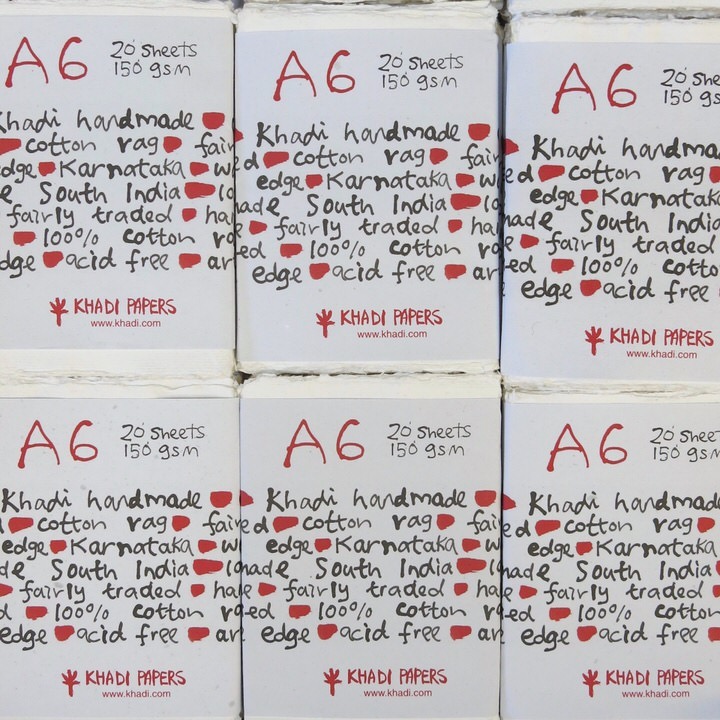 A6 20 Sheets
150 gsm
Khadi handmade
cotton rag fair
edge Karnataka w
e South India lo
fairly traded ha
100% cotton ra
dge acid free ar
KHADI PAPERS
www.khadi.com
A6 20 Sheets
150 gsm
Khadi handmade
ed cotton rag fair
edge Karnataka w
made South India lo
fairly traded ha
ed 100% cotton ra
edge acid free ar
KHADI PAPERS
www.khadi.com
A6 20 She
150 gs
Khadi handma
ed cotton rag
edge Karnatak
made South India
e fairly traded
ed 100% cotto
edge acid free
KHADI PAPERS
www.khadi.com
A6 20 Sheets
150 gsm
Khadi handmade
d cotton rag fair
edge Karnataka w
de South India lo
fairly traded ha
d 100% cotton ra
edge acid free ar
KHADI PAPERS
www.khadi.com
A6 20 Sheets
150 gsm
Khadi handmade
ed cotton rag fair
edge Karnataka w
made South India lo
e fairly traded ha
ed 100% cotton ra
edge acid free ar
KHADI PAPERS
www.khadi.com
A6 20 She
150 gs
Khadi handma
ed cotton rag
edge Karnataka
made South India
e fairly traded
ed 100% cotton
edge acid free
KHADI PAPERS
www.khadi.com